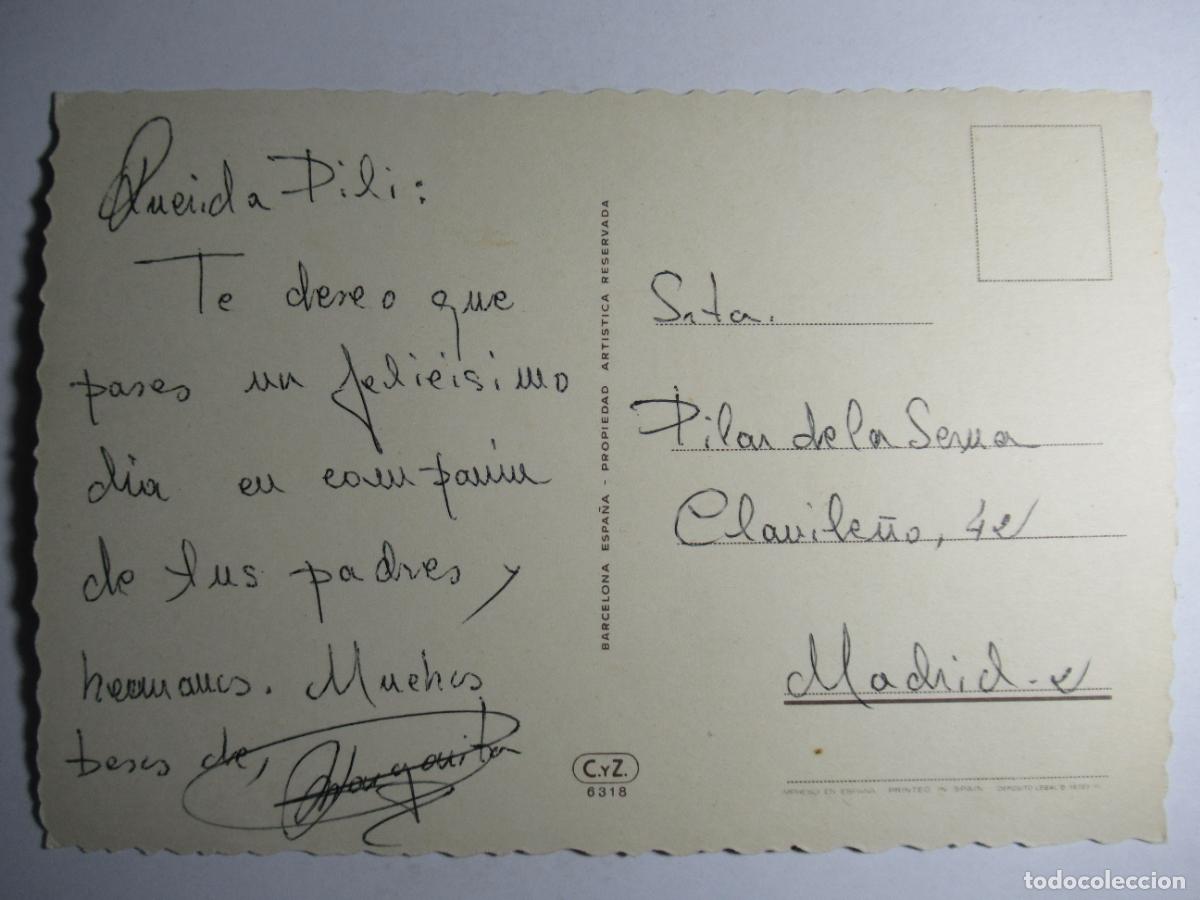 Querida Pili:
Te deseo que
pases un felicisimo
día en compañía
de tus padres y
hermanos. Muchos
besos de,
BARCELONA ESPAÑA - PROPIEDAD ARTISTICA RESERVADA
C.YZ.
6318
Srta.
Pilar de la Serna
Clavileño, 42
Madrid-2
IMPRESO EN ESPAÑA PRINTED IN SPAIN DEPOSITO LEGAL B.
todocoleccion